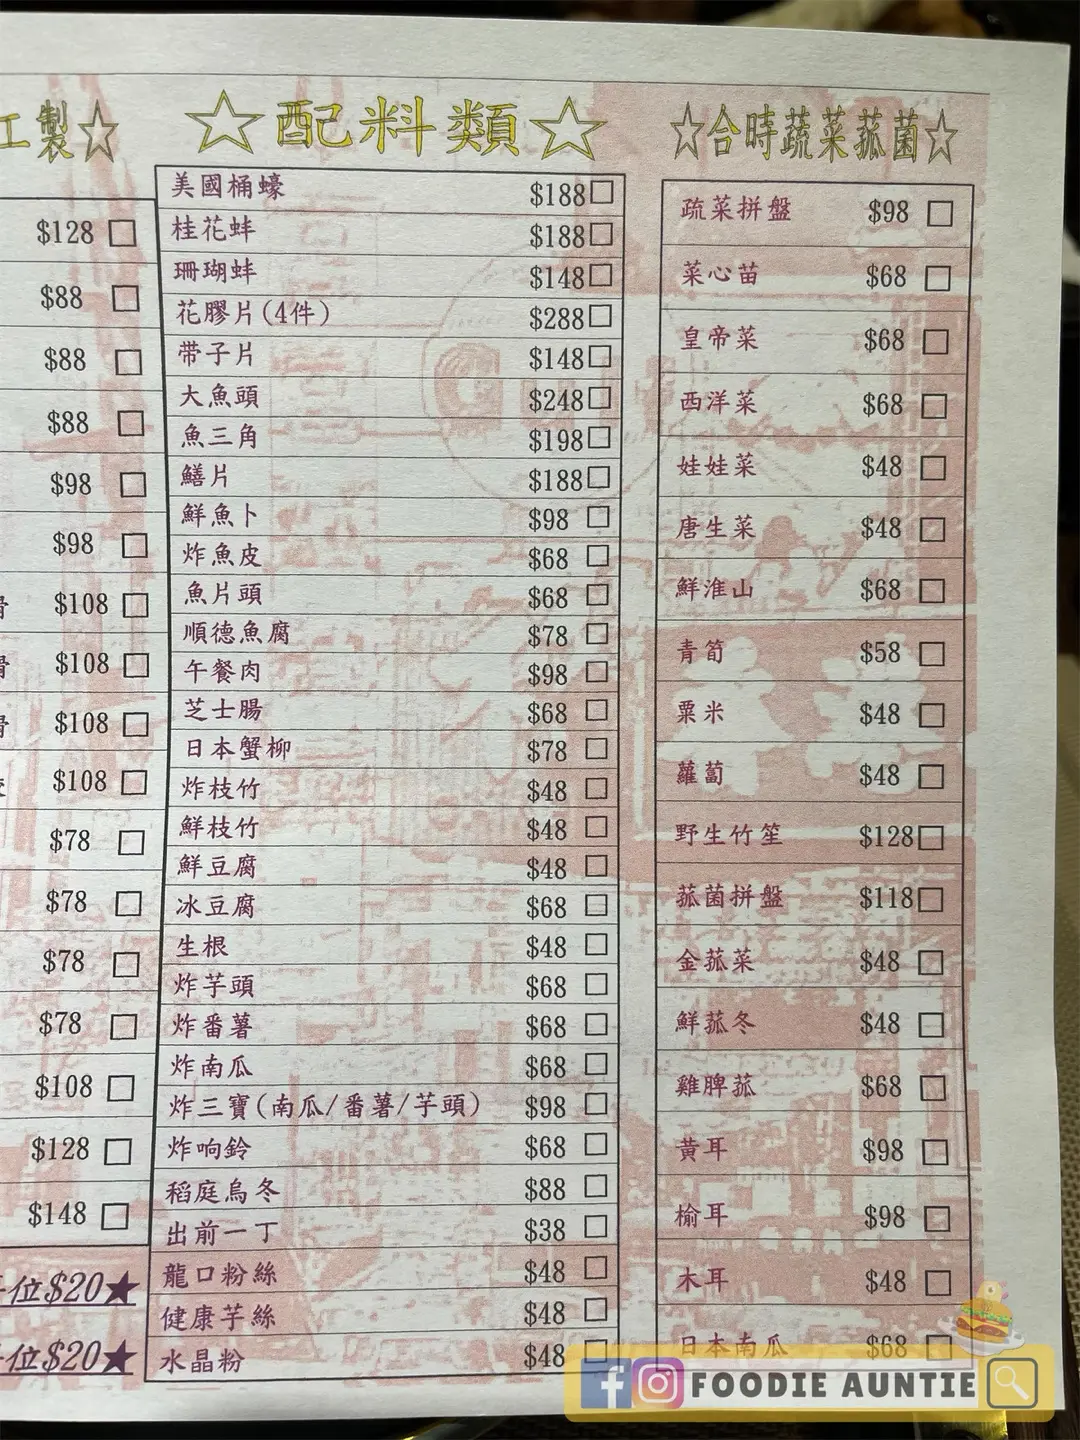 工製☆
$128
$88
$88
$88
$98
$98
$108
$108
$108
$108
$78
$78
$78
$78
$108
$128
$148
位$20★
位$20★
☆配料類☆
美國桶蠔 $188
桂花蚌 $188
珊瑚蚌 $148
花膠片(4件) $288
帶子片 $148
大魚頭 $248
魚三角 $198
鱔片 $188
鮮魚卜 $98
炸魚皮 $68
魚片頭 $68
順德魚腐 $78
午餐肉 $98
芝士腸 $68
日本蟹柳 $78
炸枝竹 $48
鮮枝竹 $48
鮮豆腐 $48
冰豆腐 $68
生根 $48
炸芋頭 $68
炸番薯 $68
炸南瓜 $68
炸三寶(南瓜/番薯/芋頭) $98
炸响鈴 $68
稻庭烏冬 $88
出前一丁 $38
龍口粉絲 $48
健康芋絲 $48
水晶粉 $48
☆合時蔬菜菰菌☆
疏菜拼盤 $98
菜心苗 $68
皇帝菜 $68
西洋菜 $68
娃娃菜 $48
唐生菜 $48
鮮淮山 $68
青筍 $58
粟米 $48
蘿蔔 $48
野生竹笙 $128
菰菌拼盤 $118
金菰菜 $48
鮮菰冬 $48
雞脾菰 $68
黃耳 $98
榆耳 $98
木耳 $48
日本南瓜 $68
FOODIE AUNTIE